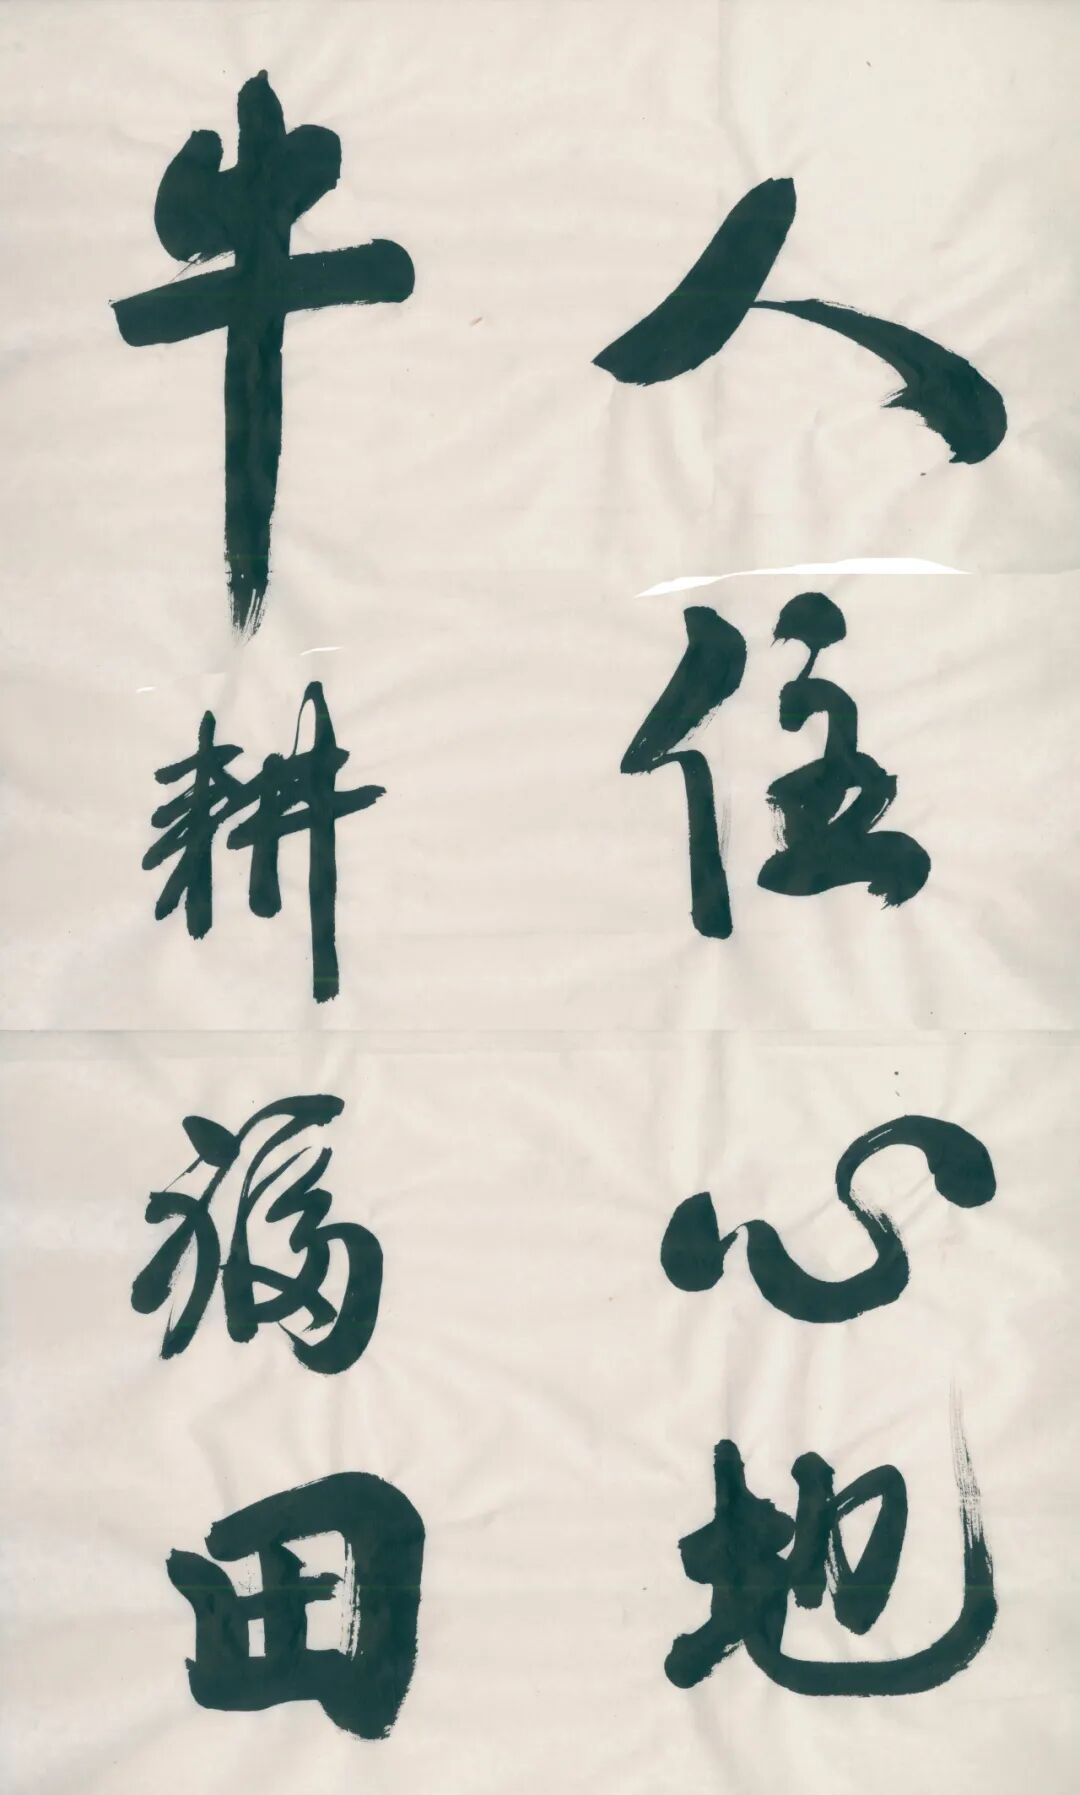 人住心地
牛耕福田